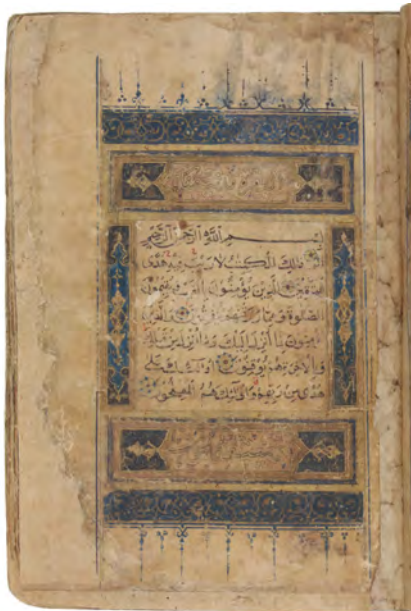 بِسْمِ اللَّهِ الرَّحْمٰنِ الرَّحِيمِ
الٓمٓ ذٰلِكَ الْكِتٰبُ لَا رَيْبَ فِيهِ هُدًى
لِلْمُتَّقِينَ الَّذِينَ يُؤْمِنُونَ بِالْغَيْبِ وَيُقِيمُونَ
الصَّلٰوةَ وَمِمَّا رَزَقْنٰهُمْ يُنْفِقُونَ وَالَّذِينَ
يُؤْمِنُونَ بِمَا أُنْزِلَ إِلَيْكَ وَمَا أُنْزِلَ مِنْ قَبْلِكَ
وَبِالْآخِرَةِ هُمْ يُوقِنُونَ أُولٰئِكَ عَلَى
هُدًى مِنْ رَبِّهِمْ وَأُولٰئِكَ هُمُ الْمُفْلِحُونَ